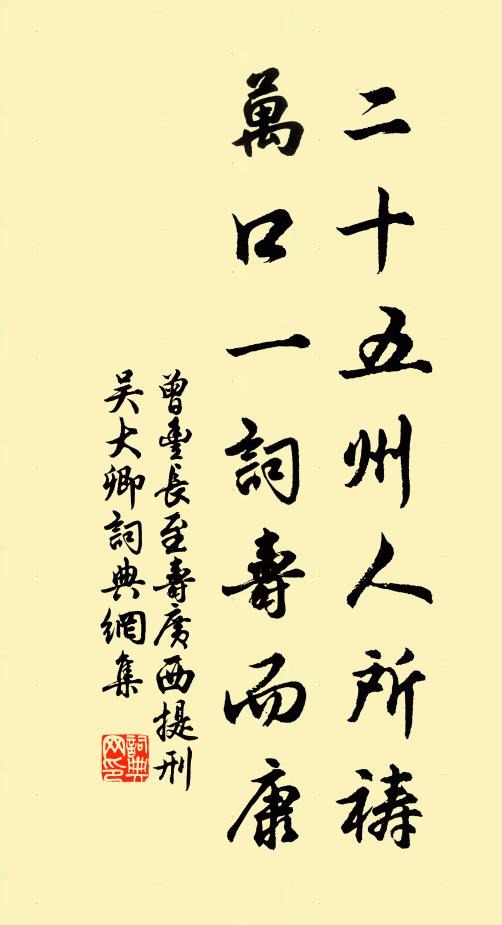 二十五州人所祷
萬口一詞壽而康
曾豐長至壽廣西提刑
吴大卿詞典網集
詞典网印